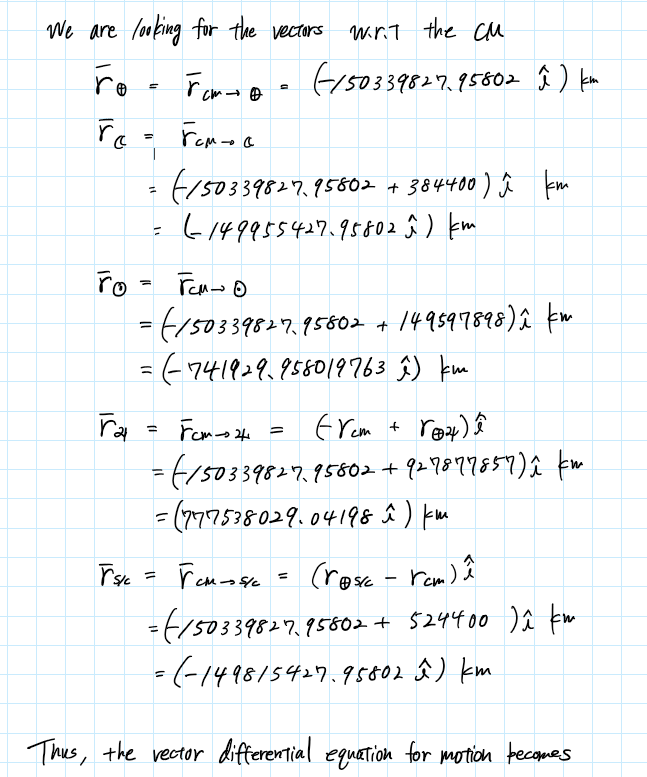 We are looking for the vectors w.r.t the CM
r̄⊕ = r̄cm→⊕ = (-150339827.95802 î) km
r̄☾ = r̄cm→☾
= (-150339827.95802 + 384400) î km
= (-149955427.95802 î) km
r̄☉ = r̄cm→☉
= (-150339827.95802 + 149597898) î km
= (-741929.958019763 î) km
r̄♃ = r̄cm→♃ = (-rcm + r⊕♃) î
= (-150339827.95802 + 927877857) î km
= (777538029.04198 î) km
r̄s/c = r̄cm→s/c = (r⊕s/c - rcm) î
= (-150339827.95802 + 524400 ) î km
= (-149815427.95802 î) km
Thus, the vector differential equation for motion becomes